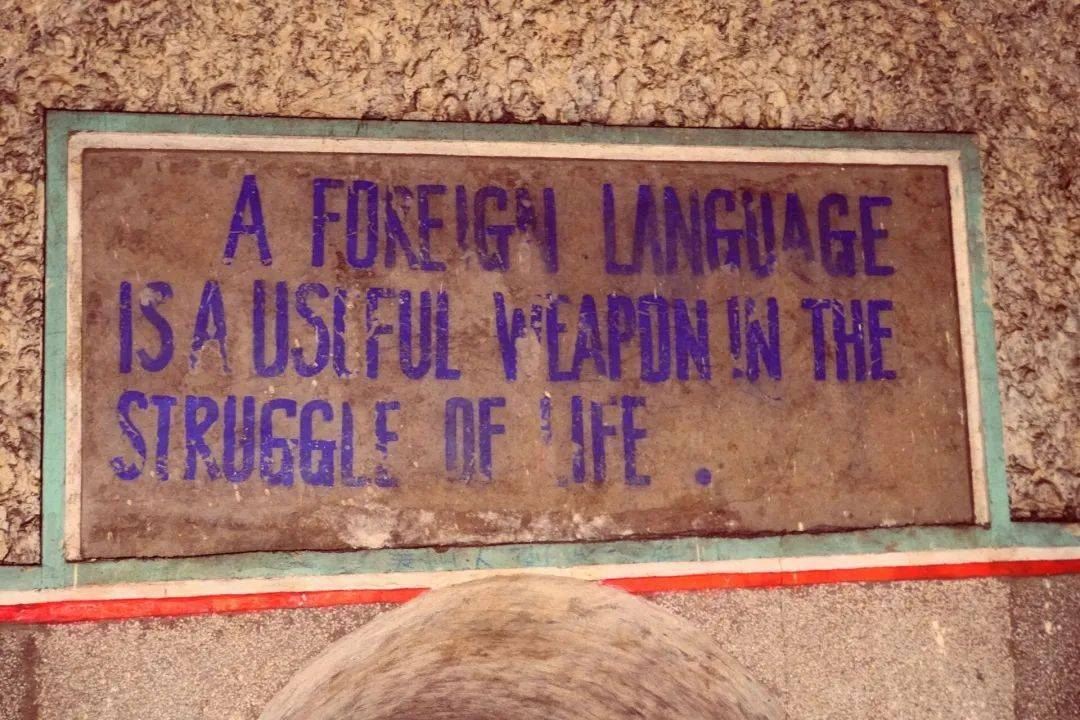 A FOREIGN LANGUAGE
IS A USEFUL WEAPON IN THE
STRUGGLE OF LIFE .